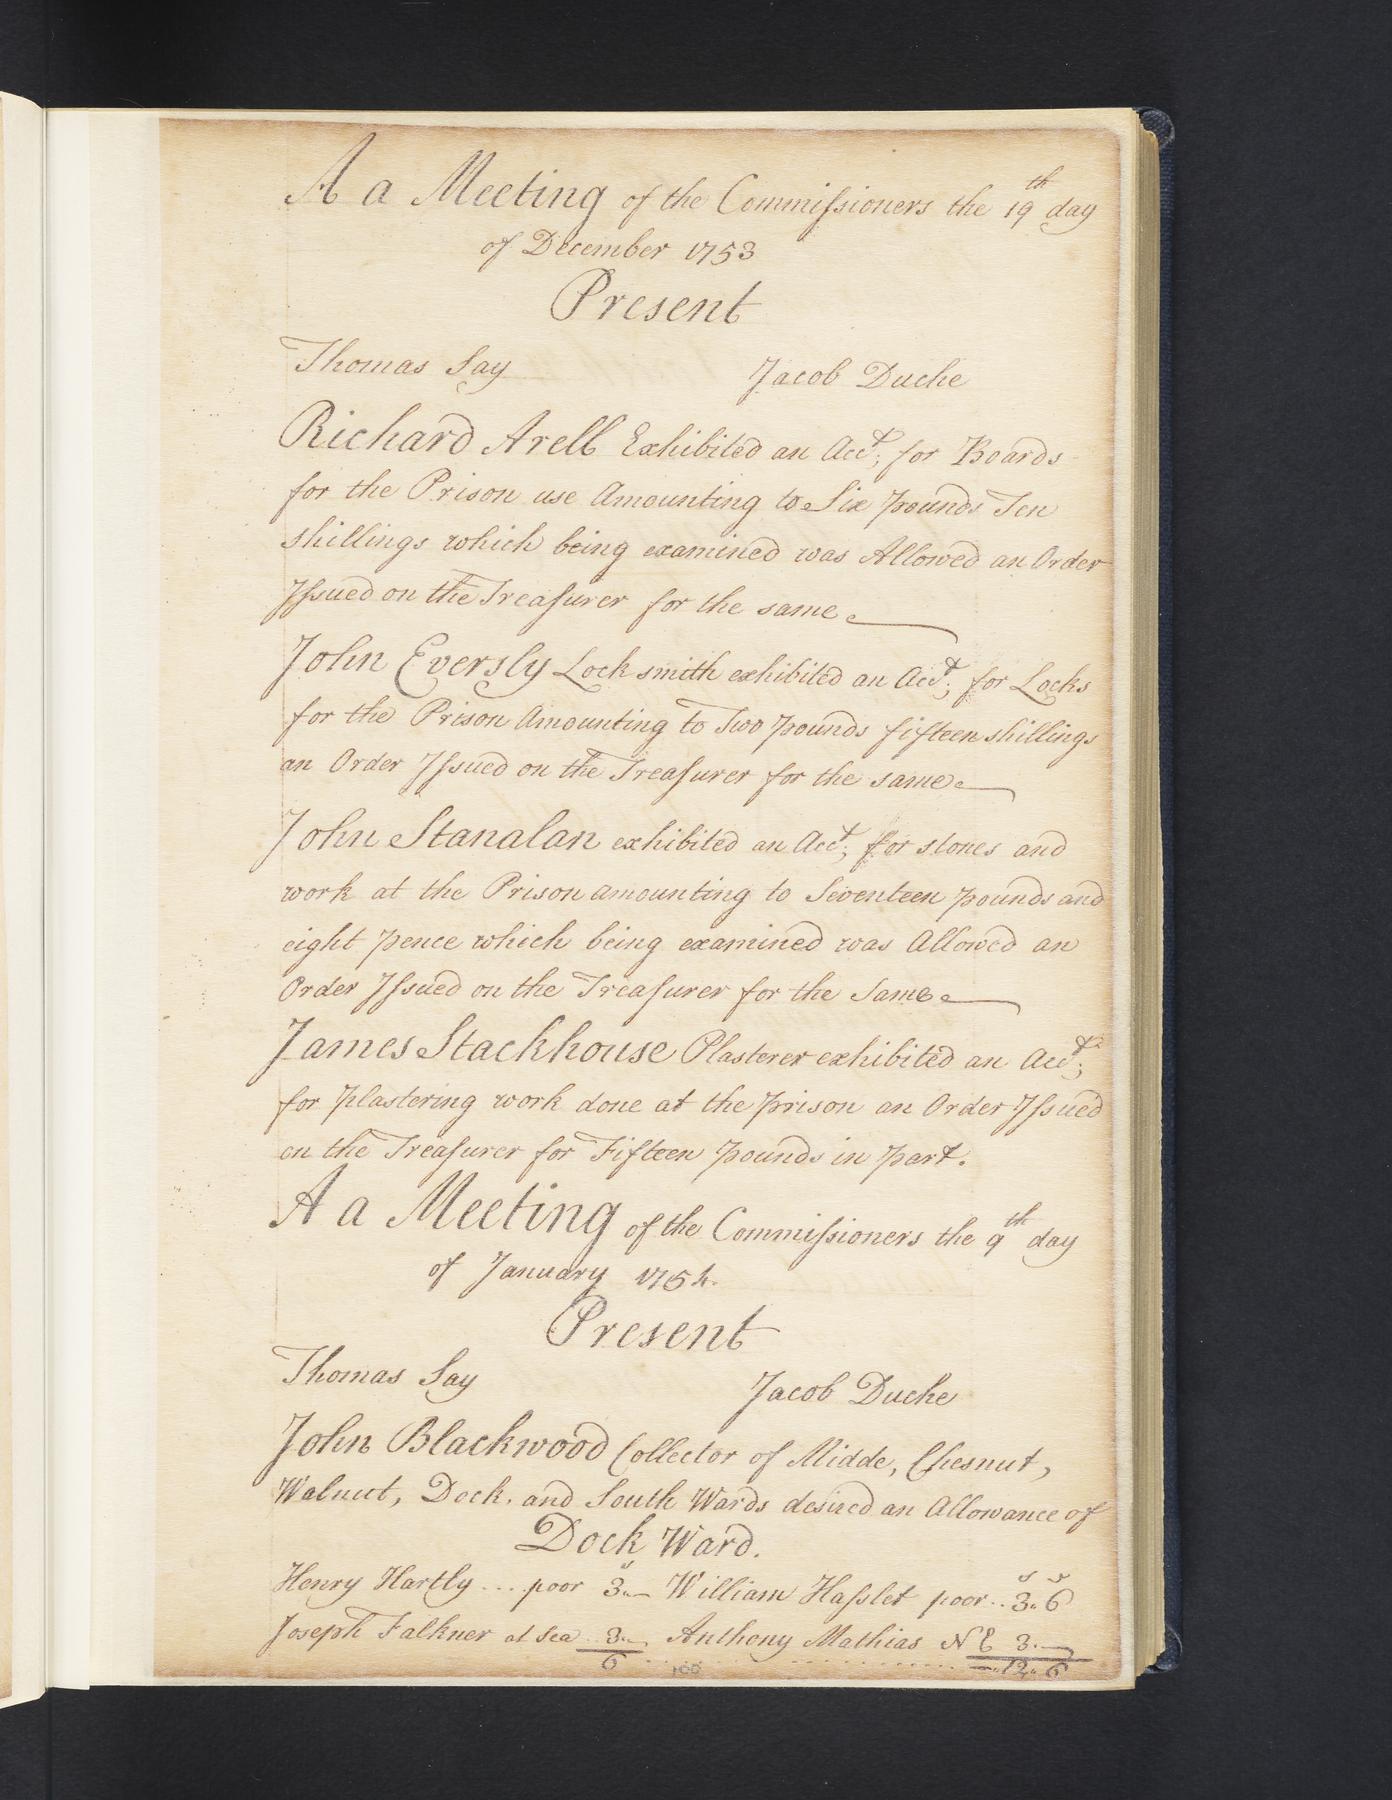 A a Meeting of the Commissioners the 19th day
of December 1753
Present
Thomas Say Jacob Duche
Richard Arell Exhibited an Acct; for Boards
for the Prison use Amounting to Six pounds Ten
shillings which being examined was Allowed an Order
Issued on the Treasurer for the same
John Eversly Lock smith exhibited an Acct; for Locks
for the Prison Amounting to Two pounds fifteen shillings
an Order Issued on the Treasurer for the same
John Stanalan exhibited an Acct; for stones and
work at the Prison amounting to Seventeen pounds and
eight pence which being examined was Allowed an
Order Issued on the Treasurer for the Same
James Stackhouse Plasterer exhibited an Acct;
for plastering work done at the prison an Order Issued
on the Treasurer for Fifteen pounds in part.
A a Meeting of the Commissioners the 9th day
of January 1754.
Present
Thomas Say Jacob Duche
John Blackwood Collector of Midde, Chesnut,
Walnut, Dock, and South Wards desired an Allowance of
Dock Ward.
Henry Hartly ... poor 3s.- William Hasslet poor .. 3s. 6
Joseph Falkner at Sea .. 3.- Anthony Mathias N E 3.-
6 ........ 100 ........ -.12.6